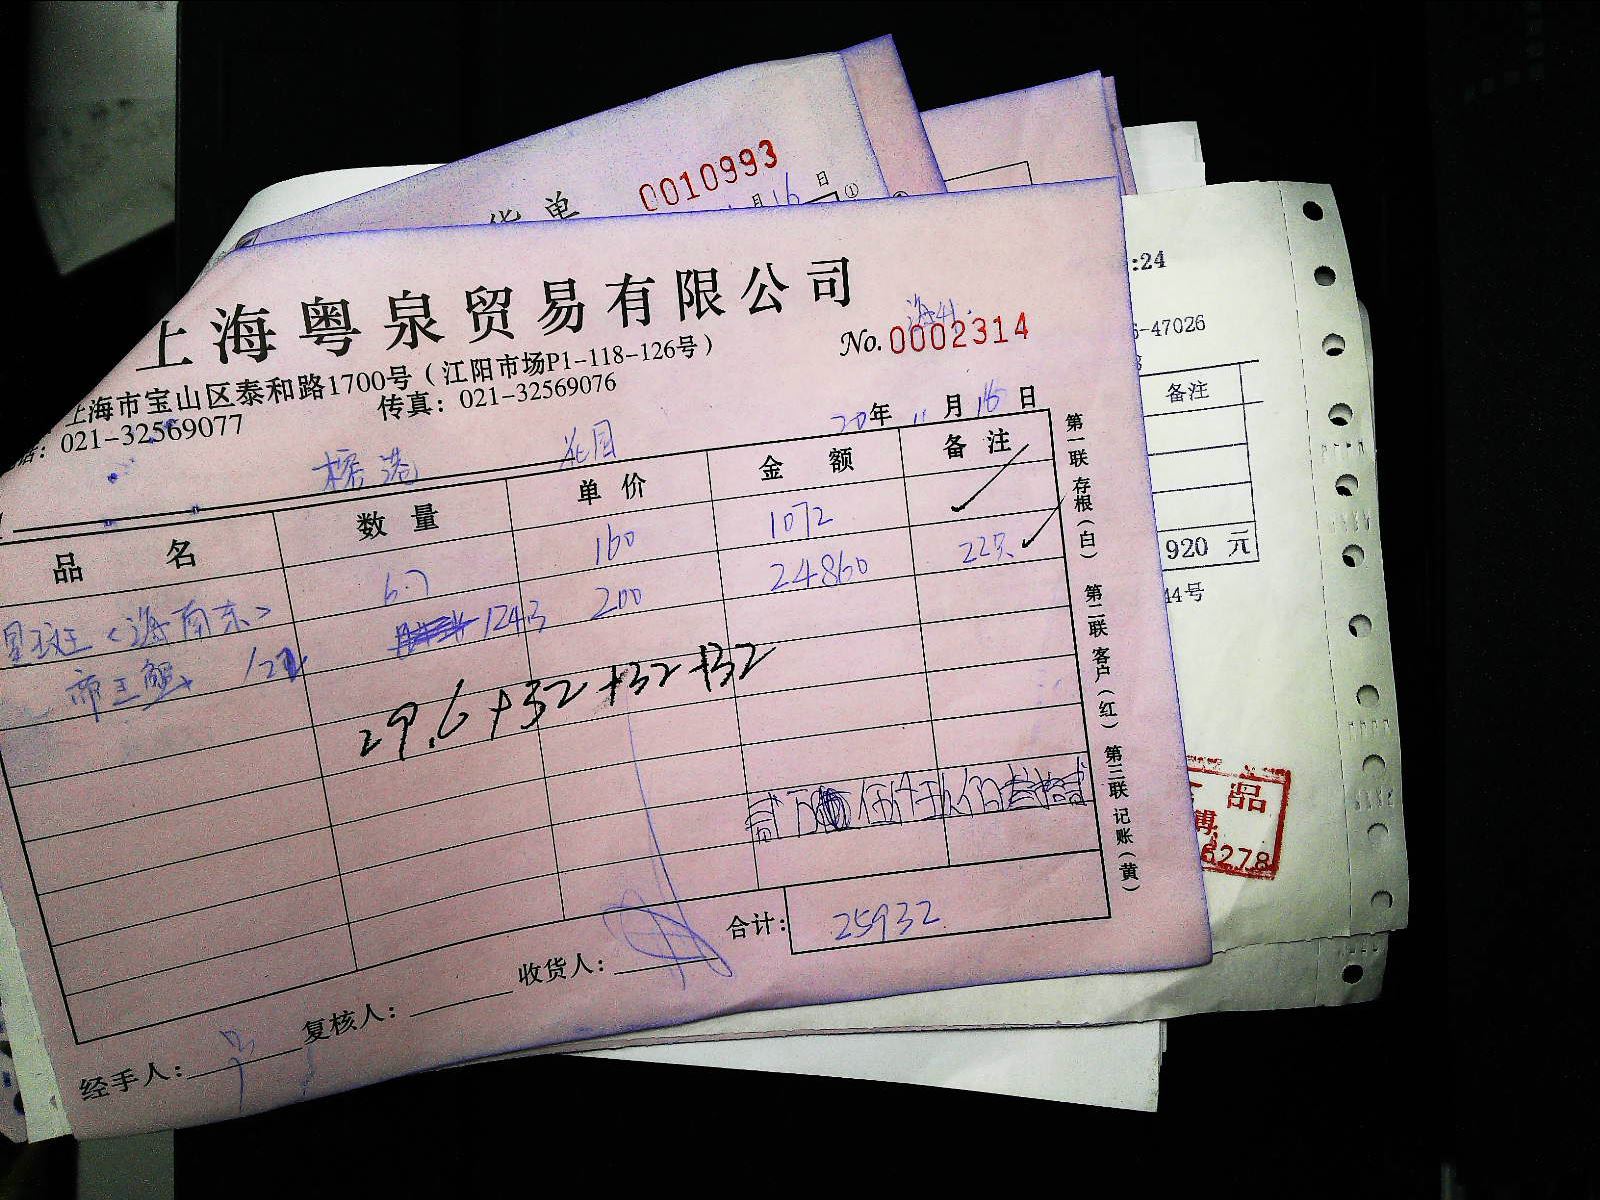 0010993
月16日①
上海粤泉贸易有限公司
No. 0002314
上海市宝山区泰和路1700号（江阳市场P1-118-126号）
021-32569077 传真：021-32569076
20年 11月 16日
品名 数量 单价 金额 备注
星斑<海南东> 6.7 160 1072
帝王蟹 124.3 200 24860 22只
29.6+32+32+32
合计： 25932
收货人：
复核人：
经手人：
第一联 存根（白） 第二联 客户（红） 第三联 记账（黄）
:24
-47026
备注
920 元
44号
品
6278